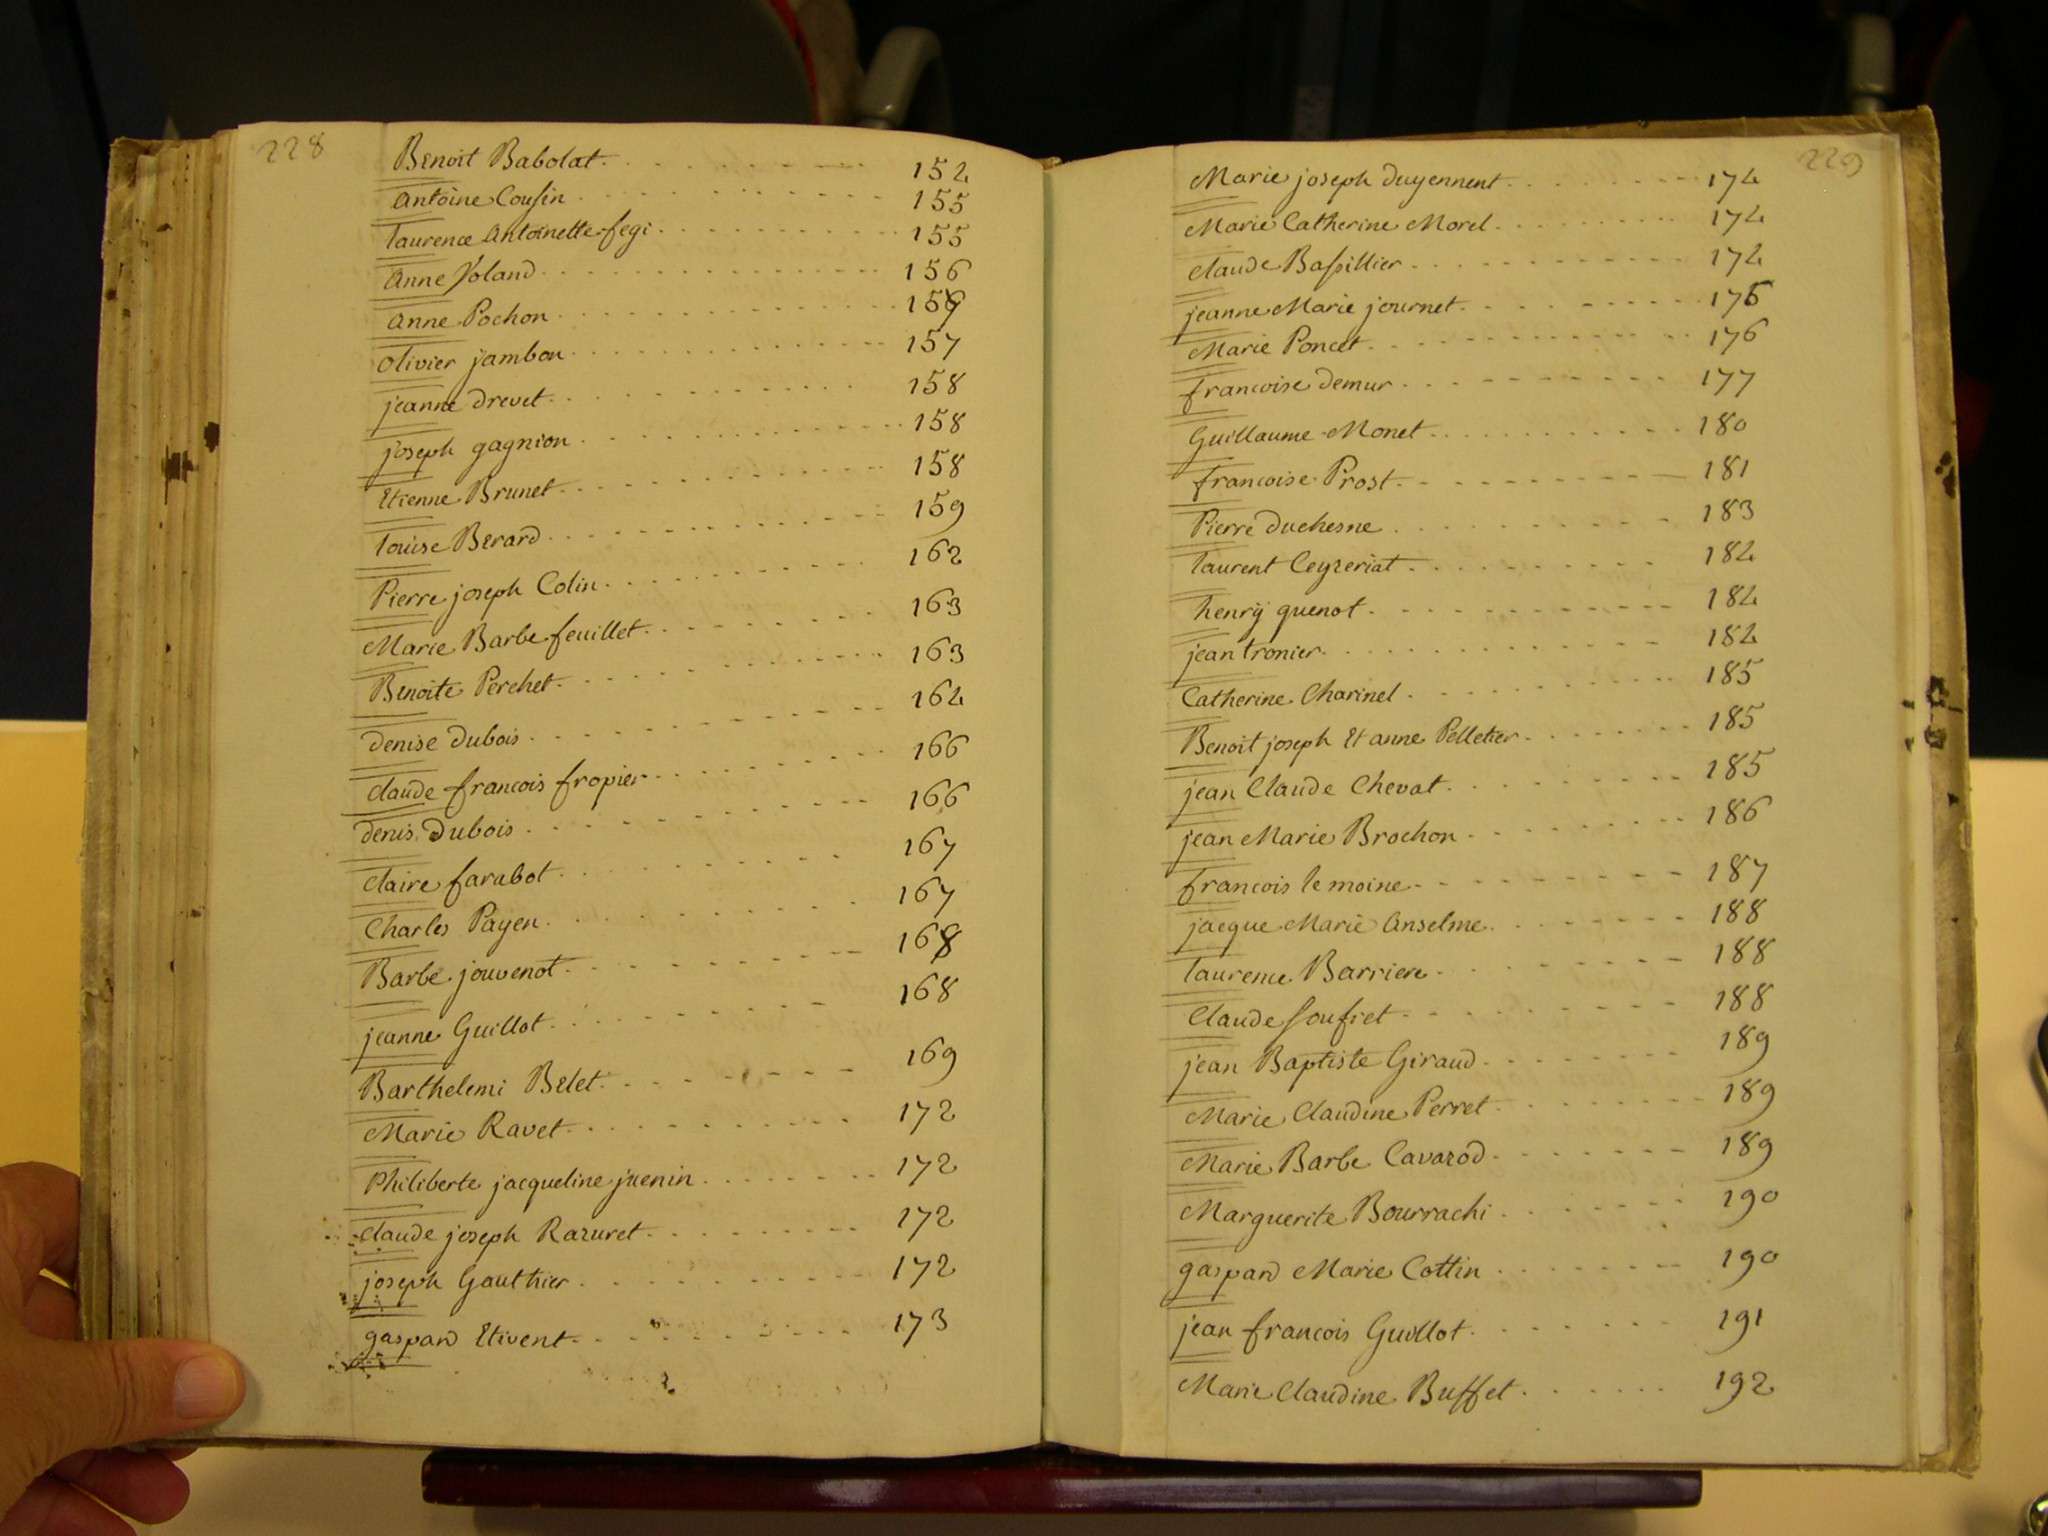 228
Benoit Babolat. 152
antoine Cousin 155
laurence antoinette fegi. 155
anne Yoland 156
anne Pochon 157
olivier jambon 157
jeanne drevet. 158
joseph gagnion 158
Etienne Brunet. 158
louise Berard 159
Pierre joseph Colin. 162
Marie Barbe feuillet. 163
Benoite Perchet. 163
denise dubois 164
claude francois fropier 166
denis Dubois 166
claire farabot 167
Charles Payen. 167
Barbe jouvenot. 168
jeanne Guillot. 168
Barthelemi Belet. 169
Marie Ravet. 172
Philiberte jacqueline juenin 172
claude joseph Razuret. 172
joseph Gauthier 172
gaspard Etivent. 173
229
Marie joseph duyennent. 174
Marie Catherine Morel 174
claude Bassillier 174
jeanne Marie journet. 175
Marie Poncet 176
francoise demur 177
Guillaume Monet. 180
francoise Prost. 181
Pierre duchesne 183
laurent Ceyzeriat 184
henry guenot. 184
jean tronier. 184
Catherine Charinel 185
Benoit joseph Et anne Pelletier 185
jean Claude Chevat. 185
jean Marie Brochon 186
francois le moine 187
jacque Marie anselme. 188
laurence Barriere 188
Claude soufiet 188
jean Baptiste Giraud 189
Marie Claudine Perret 189
Marie Barbe Cavarod 189
Marguerite Bourrachi 190
gaspard Marie Cottin 190
jean francois Guillot. 191
Marie Claudine Buffet 192